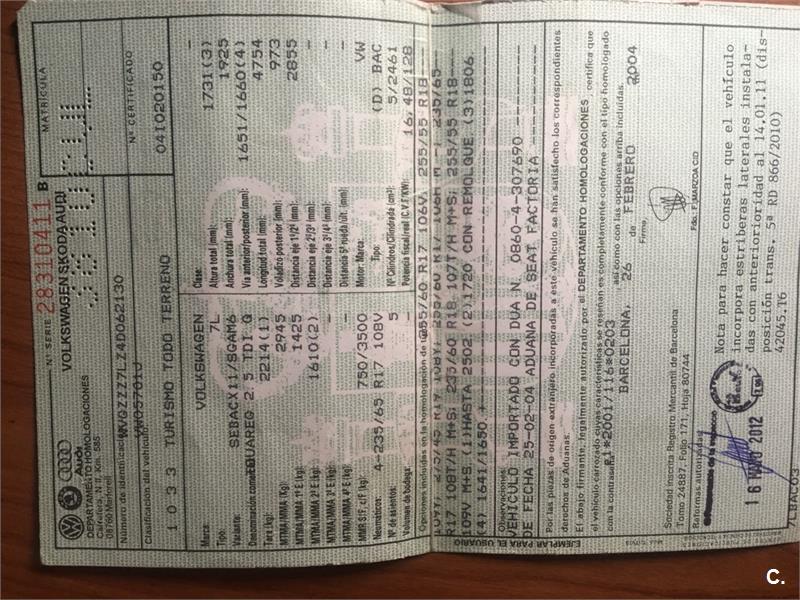 Nº SERIE 28310411 B
VOLKSWAGEN SKODA AUDI
Audi
DEPARTAMENTO HOMOLOGACIONES
Carretera, N II, Km. 585
08760 Martorell
MATRICULA
Nº CERTIFICADO
04I020150
Número de identificación
WVGZZZ7LZ4D062130
Clasificación del vehículo
1 0 3 3 TURISMO TODO TERRENO
Marca: VOLKSWAGEN
Tipo: 7L
Variante: SEBACX11/SGAM6
Denominación comercial: TOUAREG 2.5 TDI G
Tara (kg): 2214(1)
MTMA/MMA (Kg): 2945
MTMA/MMA 1º E (kg): 1425
MTMA/MMA 2º E (kg): 1610(2)
MTMA/MMA 3º E (kg): -
MTMA/MMA 4º E (kg): -
MMR S/F. c/F (kg): 750/3500
Neumáticos: 4-235/65 R17 108V
Nº de asientos: 5
Volumen de bodega: -
Clase: -
Altura total (mm): 1731(3)
Anchura total (mm): 1925
Vía anterior/posterior (mm): 1651/1660(4)
Longitud total (mm): 4754
Voladizo posterior (mm): 973
Distancia eje 1º/2º (mm): 2855
Distancia eje 2º/3º (mm): -
Distancia eje 3º/4º (mm): -
Distancia 5ª rueda/últ. (mm): -
Motor: Marca: VW
Tipo: (D) BAC
Nº Cilindros/Cilindrada (cm³): 5/2461
Potencia fiscal/real (C.V.F/KW): 16,48/128
Opciones incluidas en la homologación de tipo
255/60 R17 106V, 255/55 R18
R17 108T/H M+S; 235/60 R18 107T/H M+S; 255/55 R18
109V M+S.(1)HASTA 2502.(2)1720 CON REMOLQUE.(3)1806.
(4) 1641/1650.
Observaciones:
VEHICULO IMPORTADO CON DUA N. 0860-4-307690
DE FECHA 25-02-04 ADUANA DE SEAT FACTORIA
Por las piezas de origen extranjero incorporadas a este vehículo se han satisfecho los correspondientes
derechos de Aduanas.
El abajo firmante, legalmente autorizado por el DEPARTAMENTO HOMOLOGACIONES certifica que
el vehículo carrozado cuyas características se reseñan es completamente conforme con el tipo homologado
con la contraseña E1*2001/116*0203 así como con las opciones arriba incluidas.
BARCELONA, 26 de FEBRERO 2004
Firma,
Fdo. F. MARZOA CID
EJEMPLAR PARA EL USUARIO
Sociedad inscrita Registro Mercantil de Barcelona
Tomo 24887, Folio 171, Hoja 80744
Reformas autorizadas
16 MAYO 2012
Nota para hacer constar que el vehículo
incorpora estriberas laterales instala-
das con anteriorioridad al 14.01.11 (dis-
posición trans. 5ª RD 866/2010)
42045.T6
7LBAC03
C.